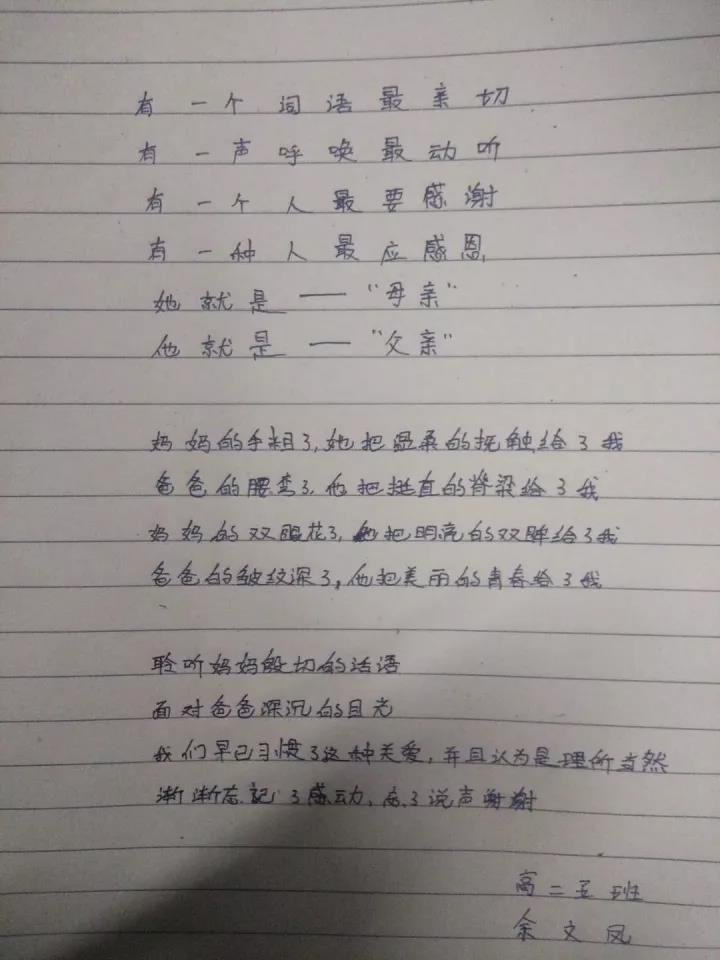 有一个词语最亲切
有一声呼唤最动听
有一个人最要感谢
有一种人最应感恩
她就是——"母亲"
他就是——"父亲"
妈妈的手粗了,她把温柔的抚触给了我
爸爸的腰弯了,他把挺直的脊梁给了我
妈妈的双眼花了,她把明亮的双眸给了我
爸爸的皱纹深了,他把美丽的青春给了我
聆听妈妈殷切的话语
面对爸爸深沉的目光
我们早已习惯了这种关爱,并且认为是理所当然
渐渐忘记了感动,忘了说声谢谢
高二五班
余文凤